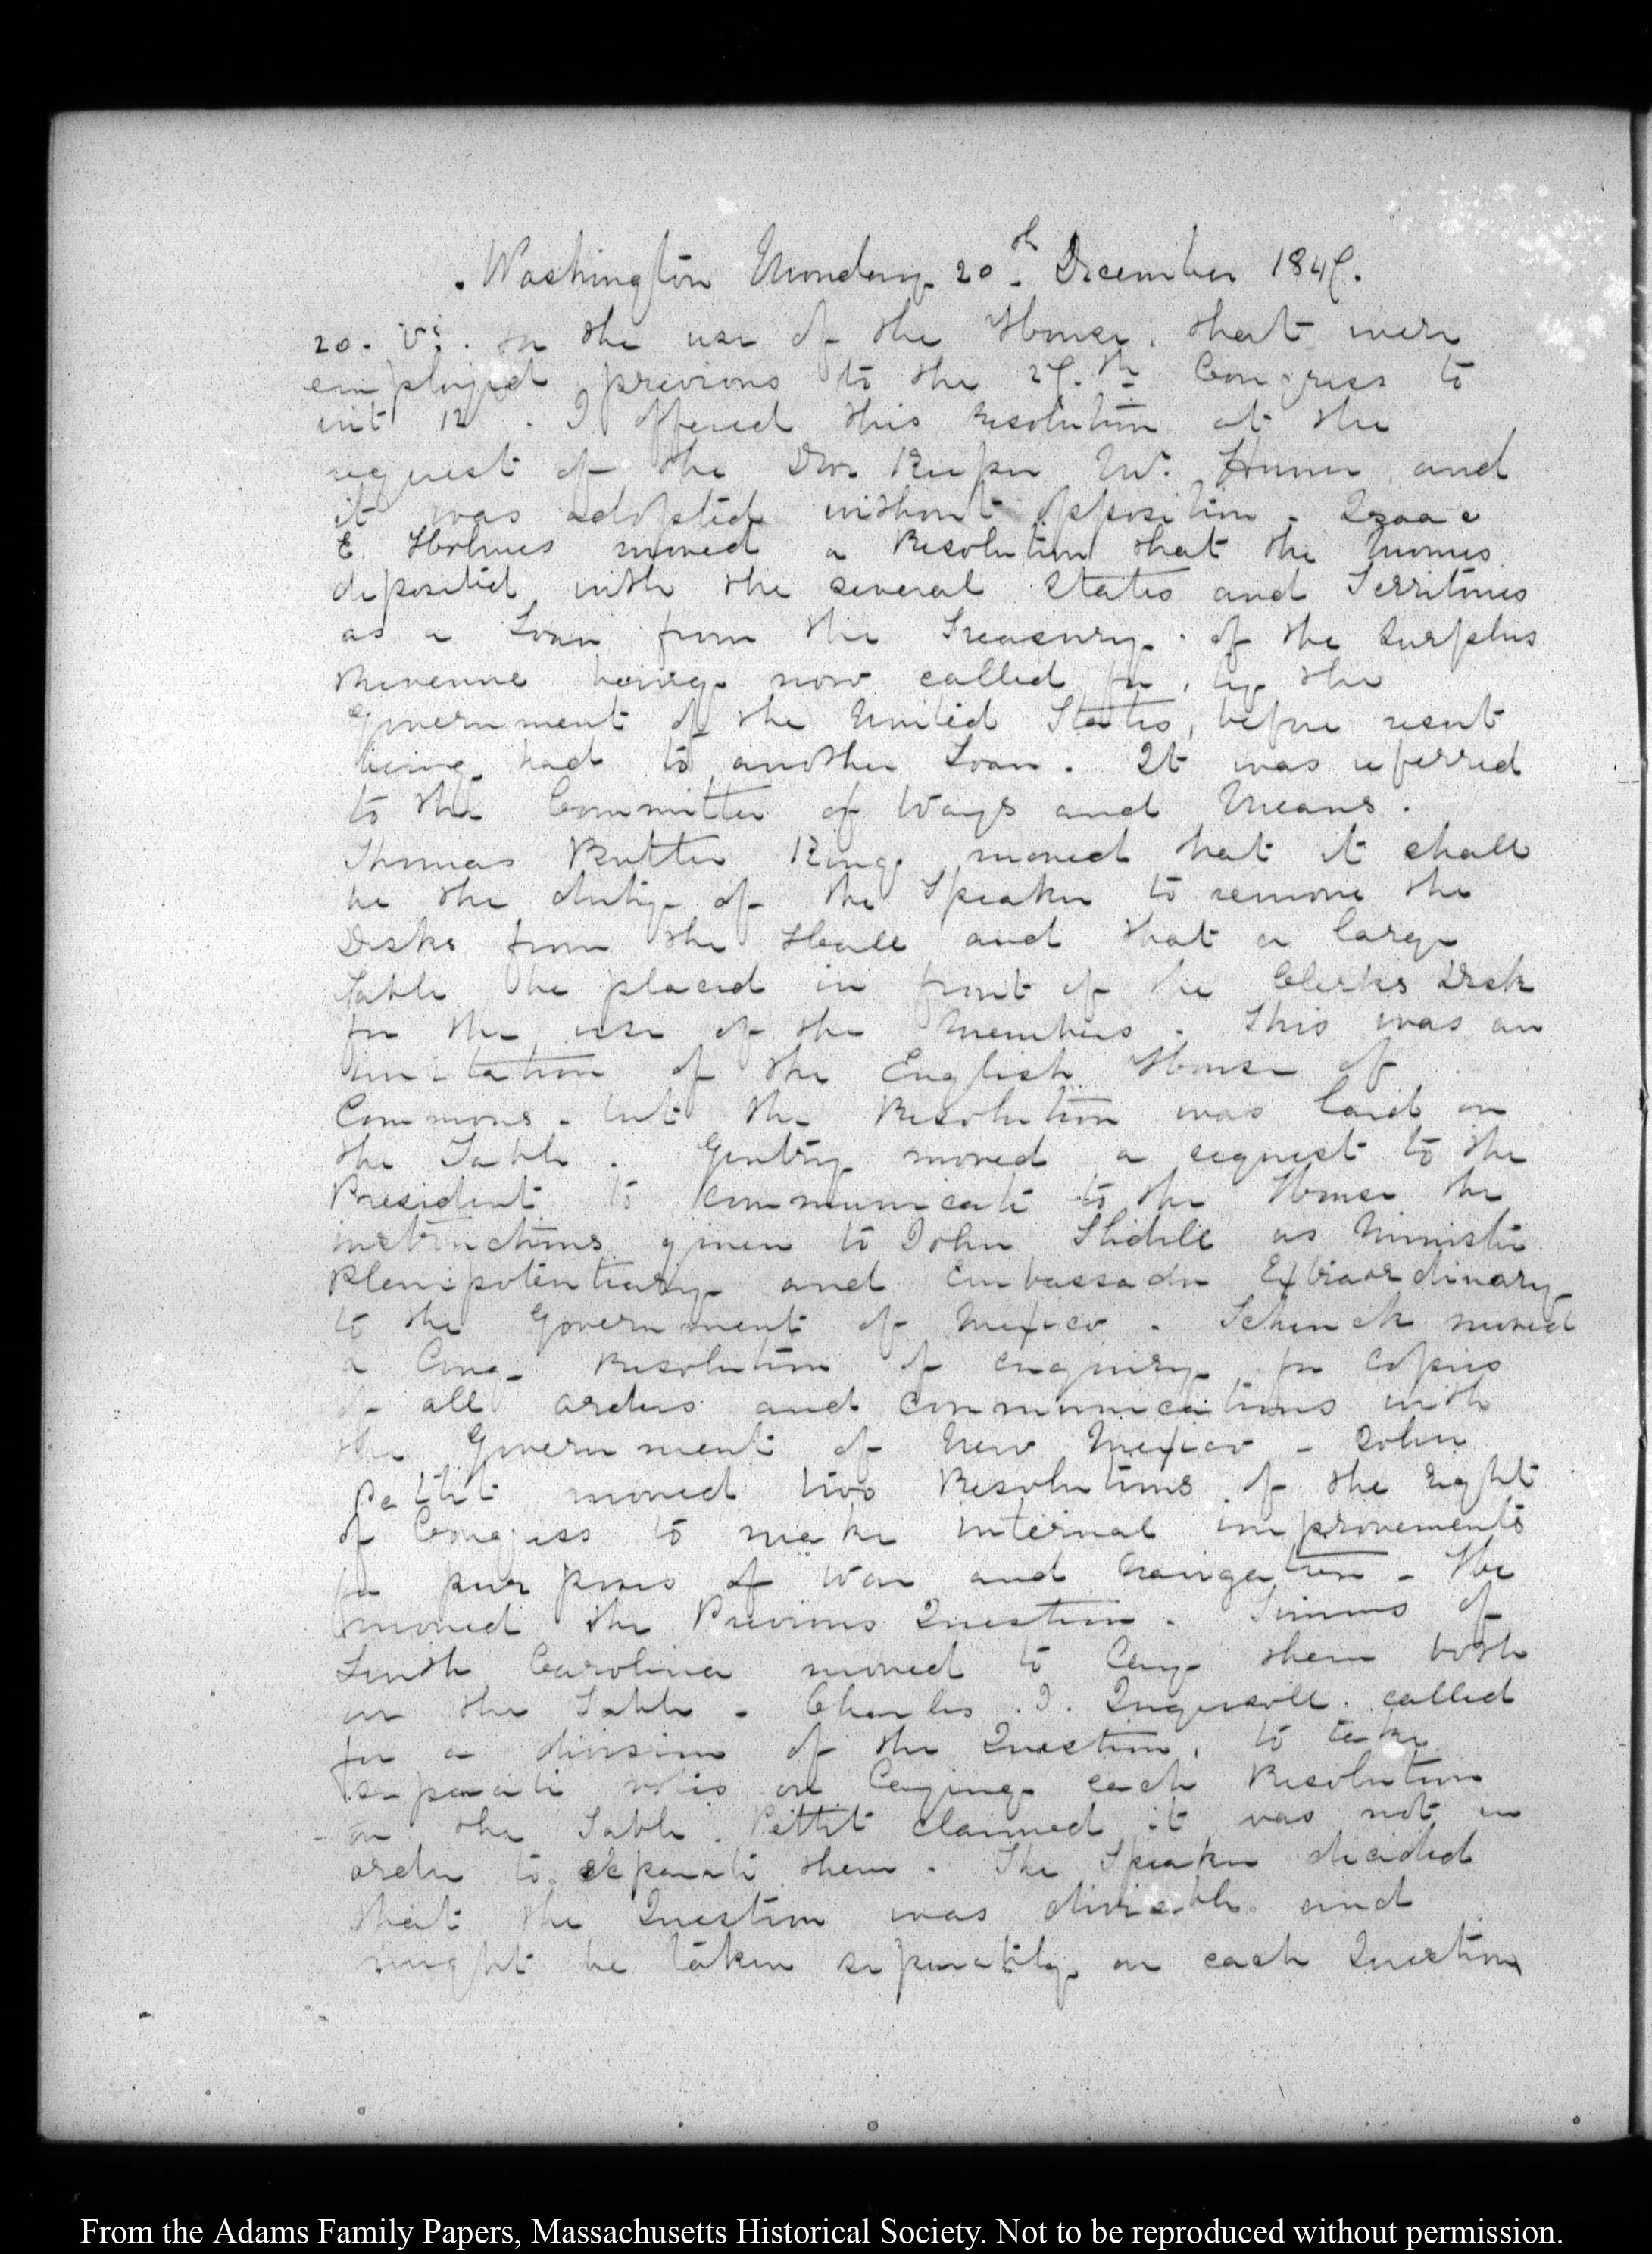 Washington Monday 20.th December 1847.
20. V:. for the use of the House, that were
employed previous to the 27.th Congress to
wit 12. I offered this Resolution at the
request of the Door Keeper Mr. Horner and
it was adopted without opposition. Isaac
E. Holmes moved a Resolution that the monies
deposited with the several States and Territories
as a Loan from the Treasury of the Surplus
Revenue being now called for, by the
Government of the United States, before resort
being had to another Loan. It was referred
to the Committee of Ways and Means.
Thomas Butler King moved that it shall
be the duty of the Speaker to remove the
Desks from the Hall and that a large
Table be placed in front of the Clerks Desk
for the use of the Members. This was an
imitation of the English House of
Commons. but the Resolution was laid on
the Table. Gentry moved a request to the
President to communicate to the House the
instructions given to John Slidell as Minister
Plenipotentiary and Embassador Extraordinary
to the Government of Mexico. Schenck moved
a long Resolution of enquiry for copies
of all orders and communications with
the Government of New Mexico - John
Pettit moved two Resolutions of the right
of Congress to make internal improvements
for purposes of War and Navigation - He
moved the Previous Question. Simms of
South Carolina moved to lay them both
on the Table - Charles J. Ingersoll called
for a division of the Question, to take
separate votes on laying each Resolution
on the Table. Pettit claimed it was not in
order to separate them. The Speaker decided
that the Question was divisable and
might be taken separately on each Question